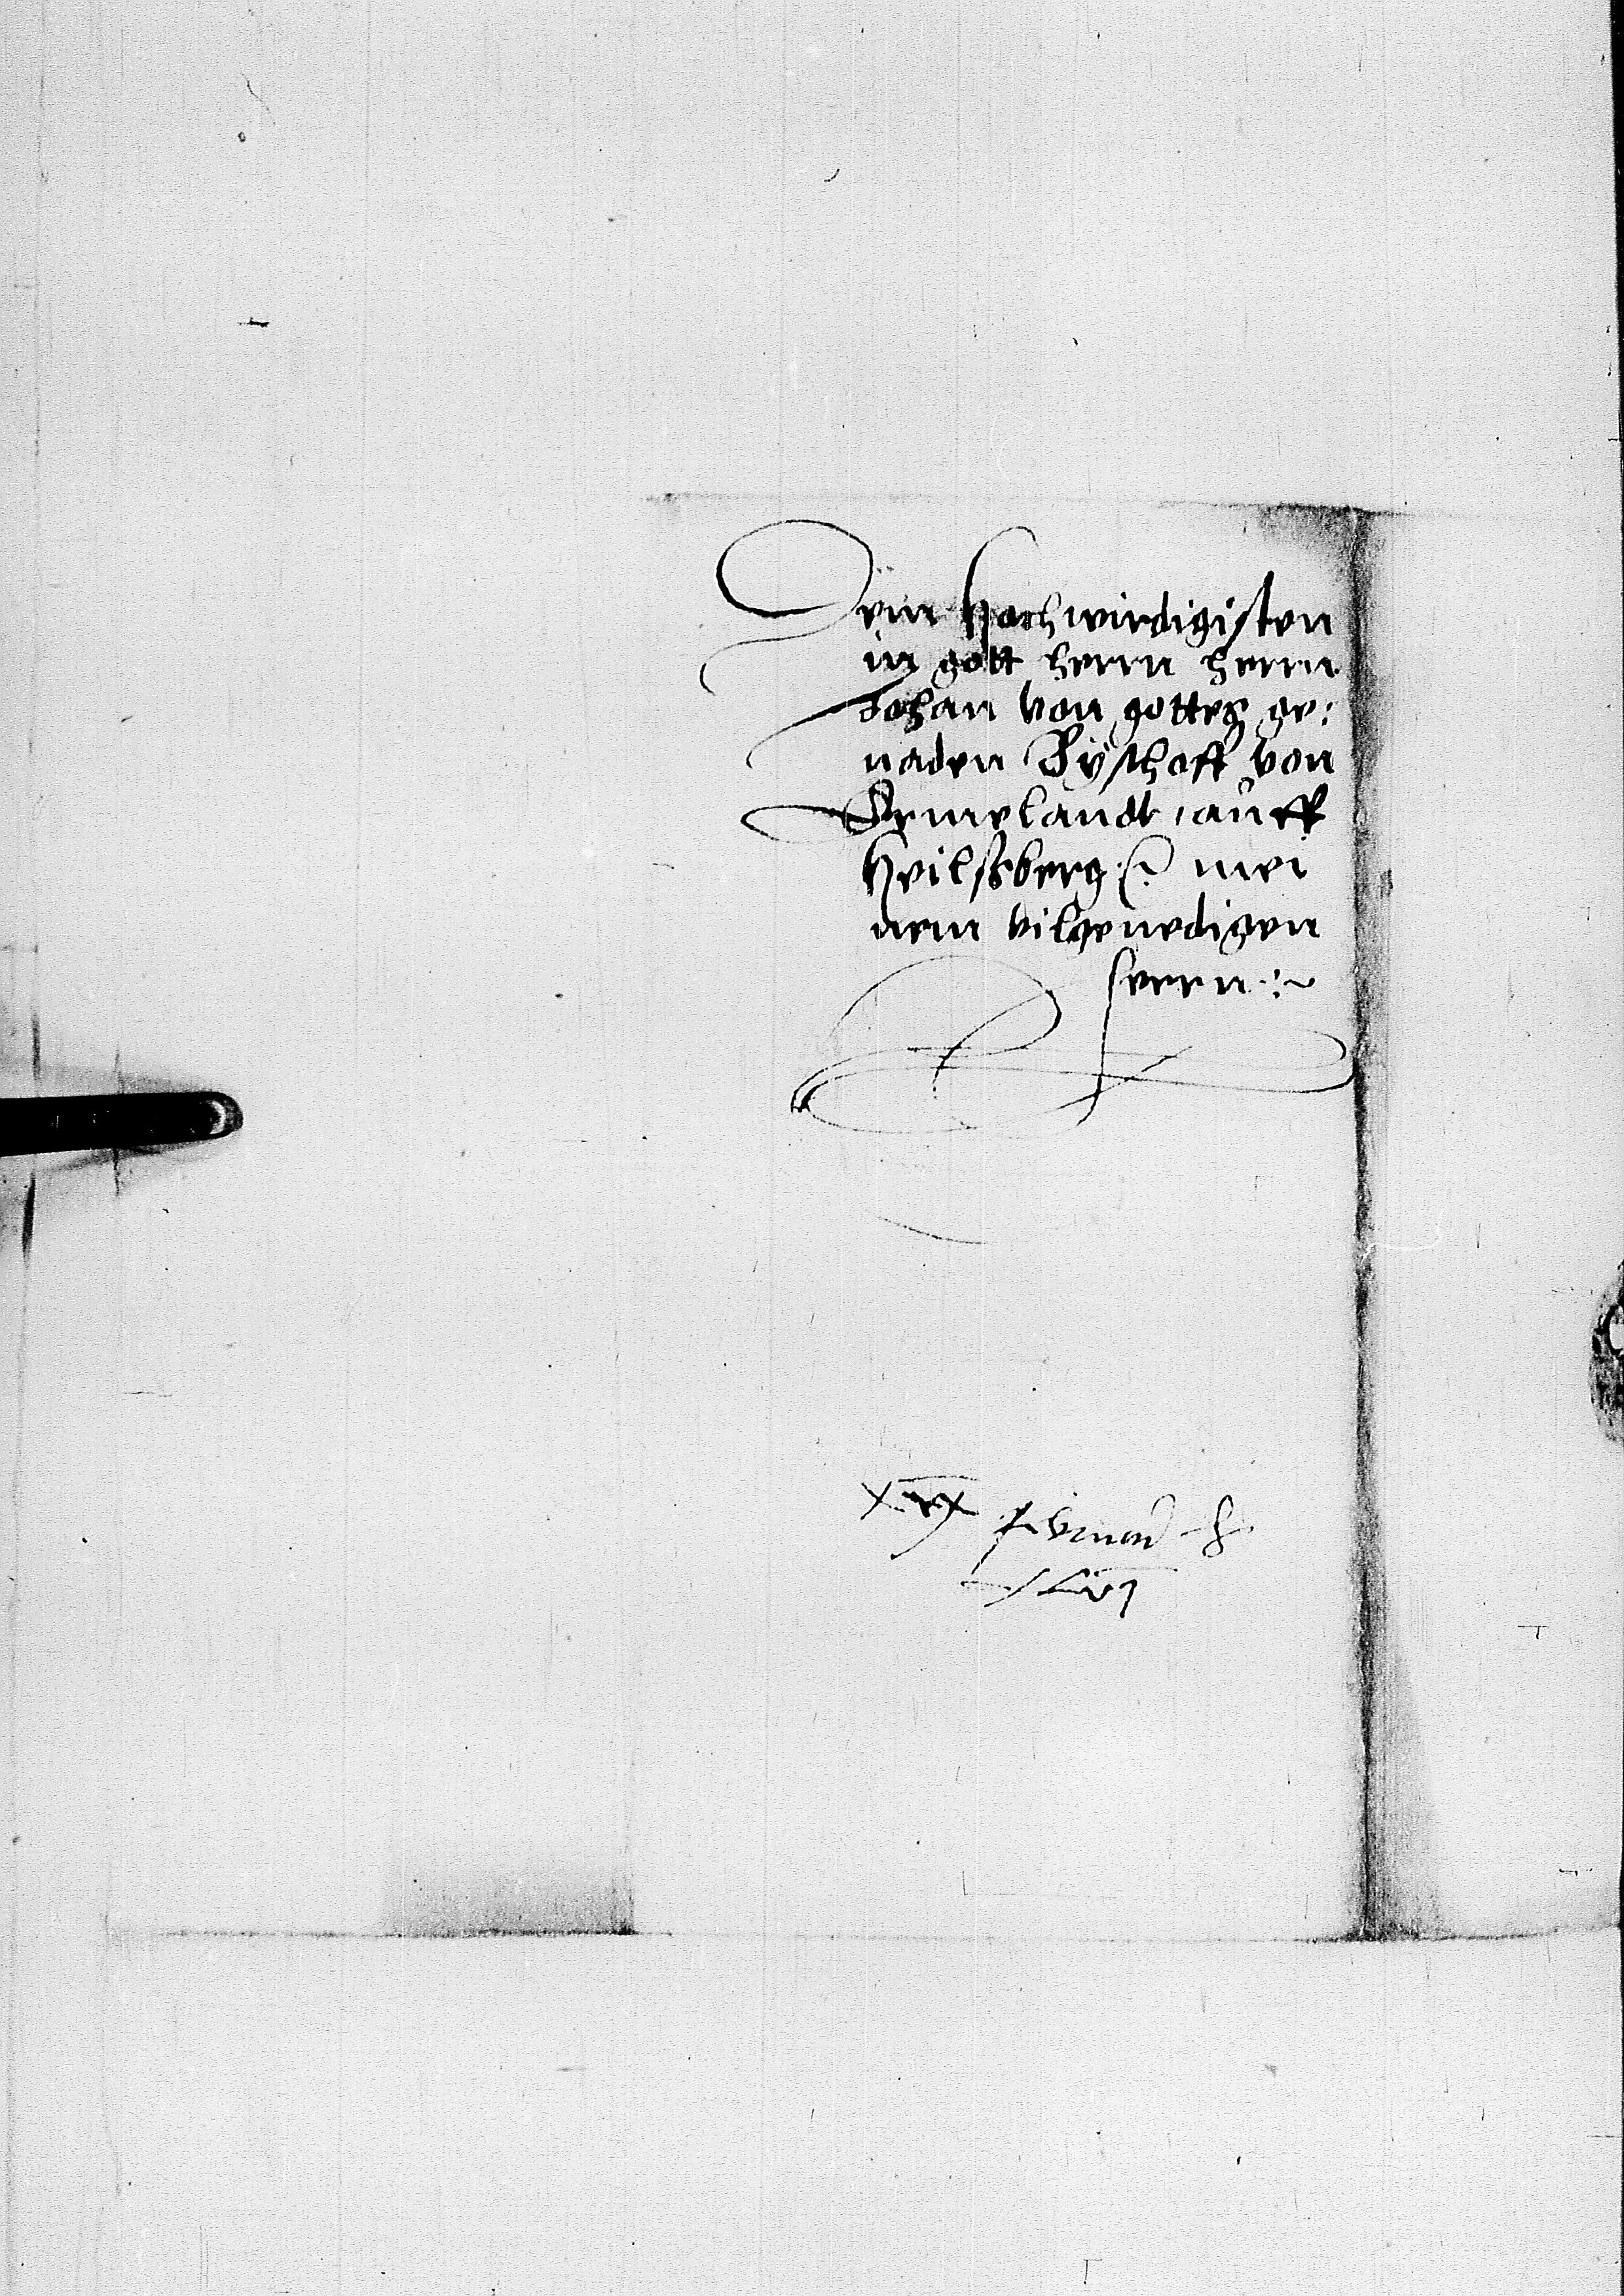 Dem hochwirdigisten
in gott herrn herrn
Johan von gottes ge:
naden Byschoff von
Ermelandt, auff
heilsßberg mei
nem vilgenedigen
herrn :~